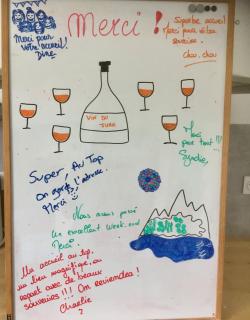 Merci !
Merci pour
votre accueil!
Superbe accueil
Merci pour votre
chou, chou
VIN DU
JURA
Merci
pour tout !!!
Sandie,
Super, Au Top
On garde l'adresse.
Merci
Nous avons passé
un excellent week-end
Merci
Un accueil au top,
un lieu magnifique, on
repart avec de beaux
souvenirs !!! On reviendra !
Charlie